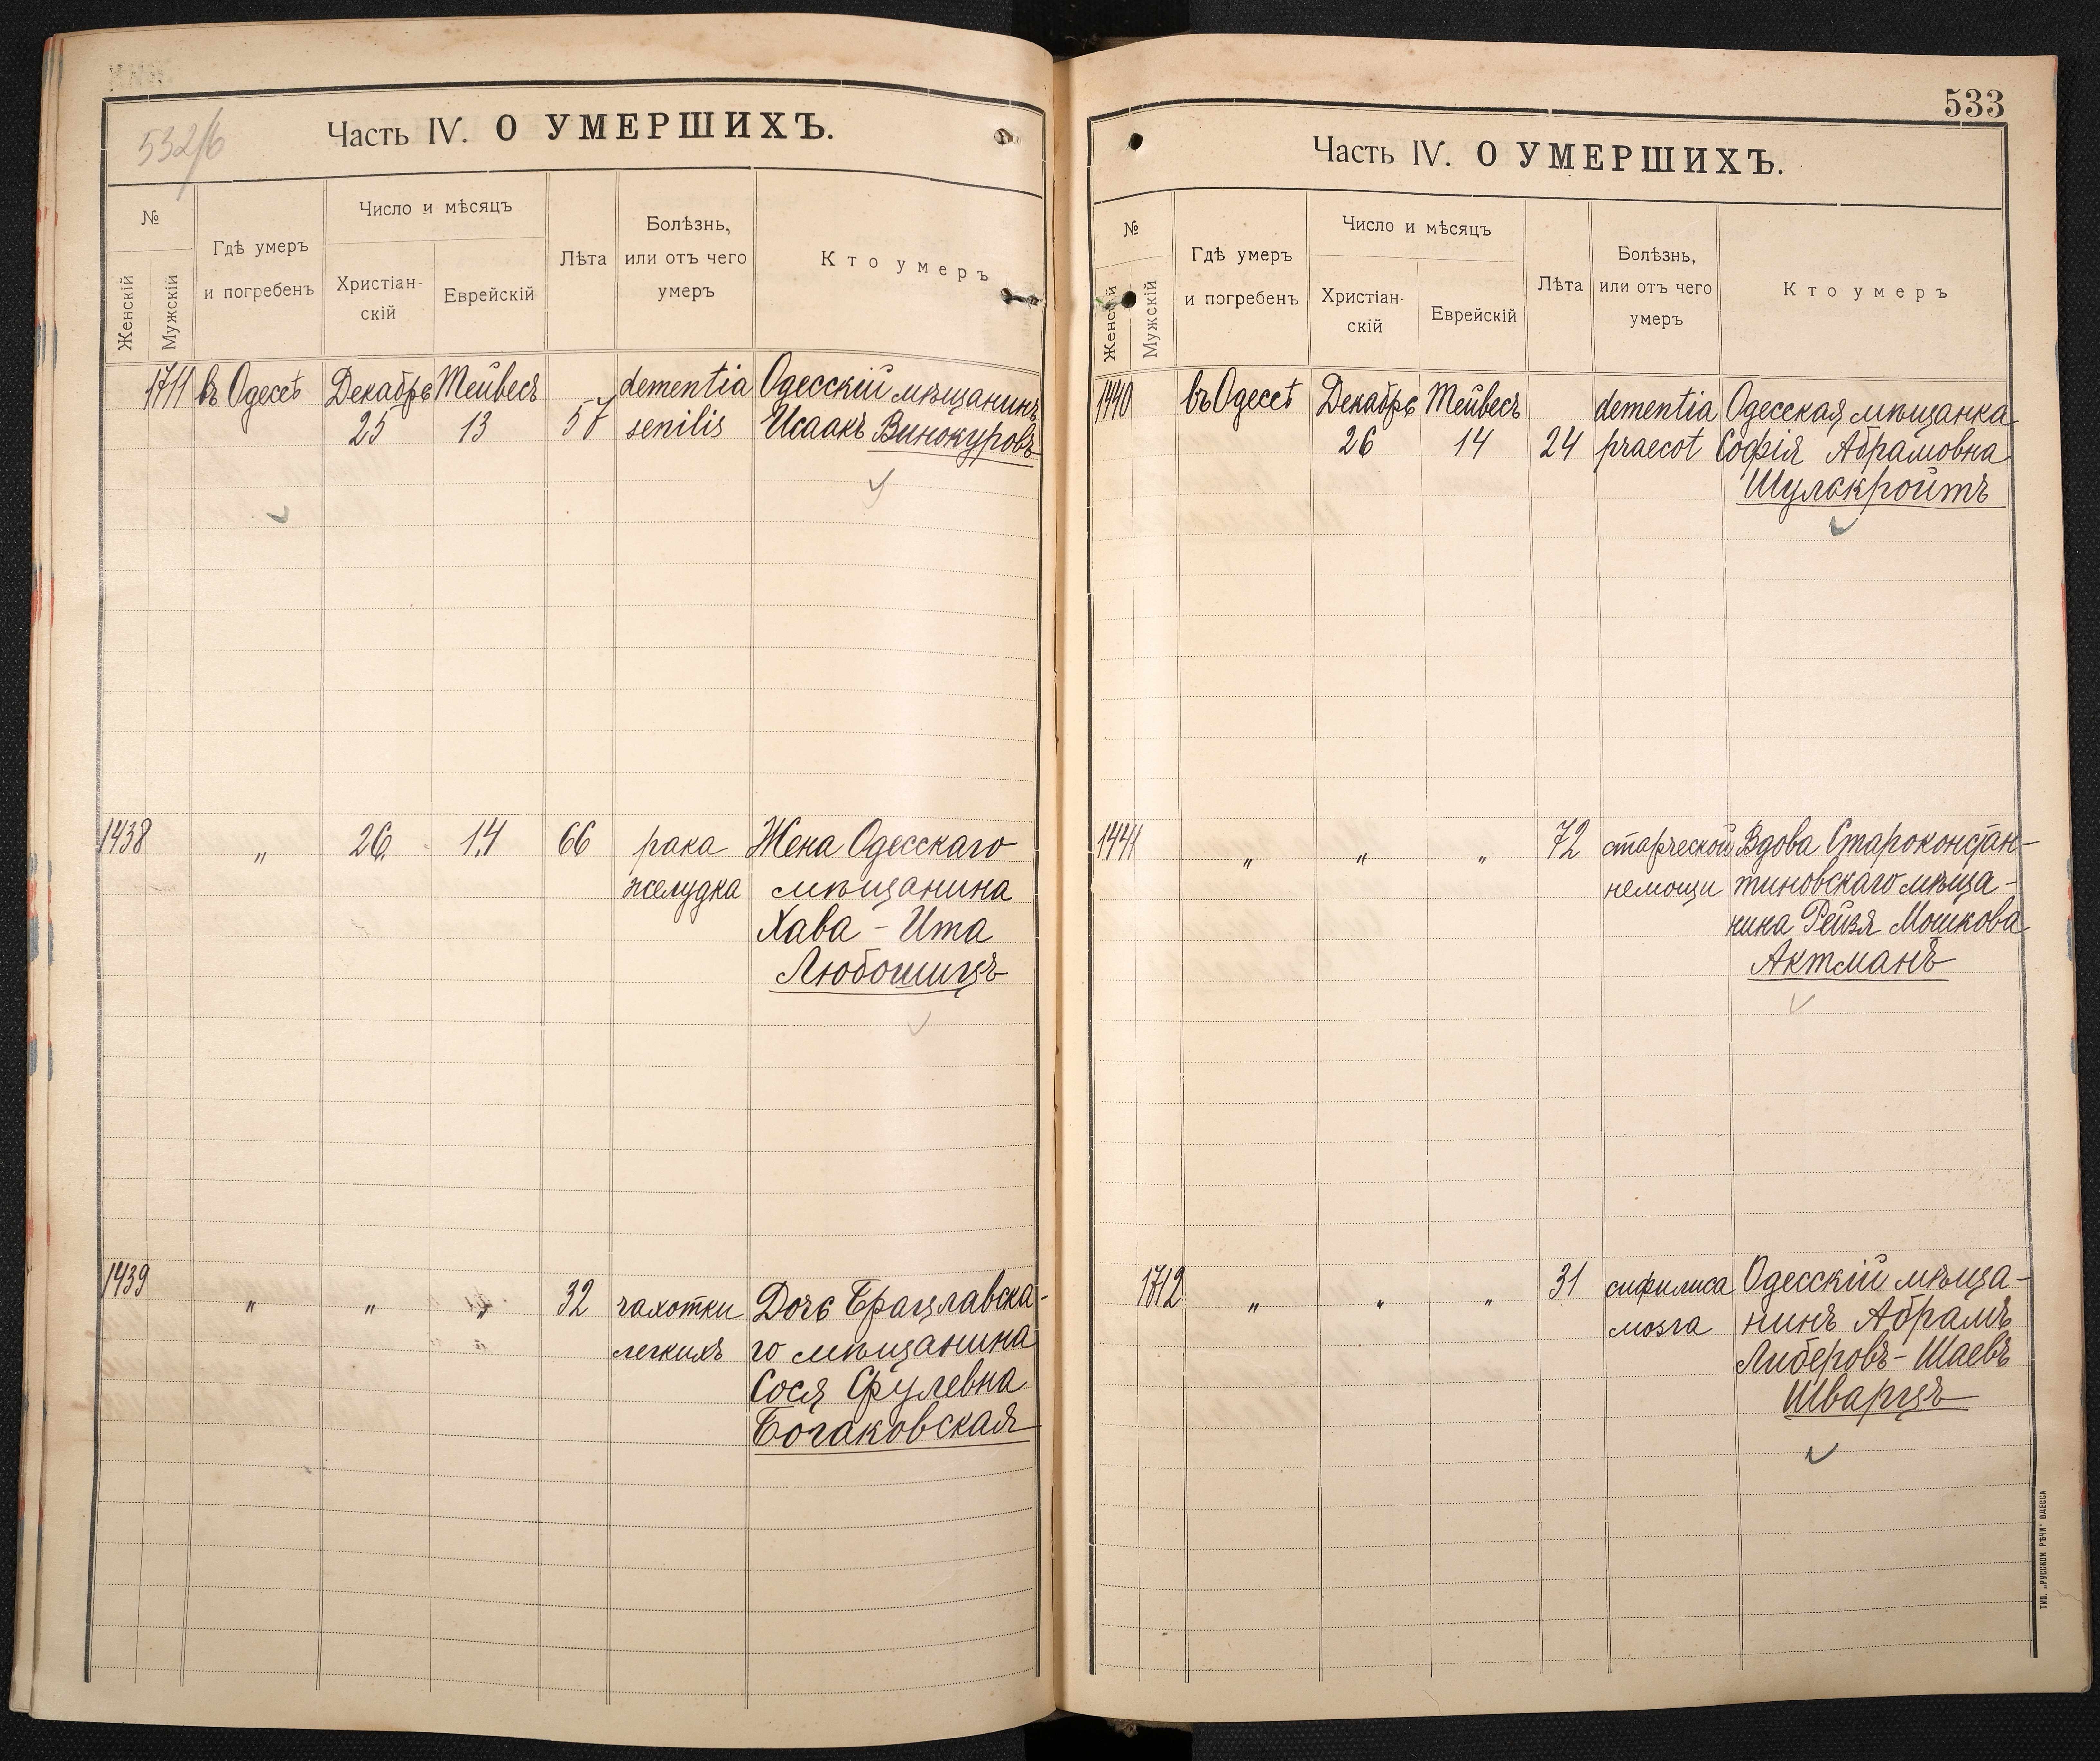 532/б
Часть IV. О УМЕРШИХЪ.
№
Женскій
Мужскій
Гдѣ умеръ
и погребенъ
Число и мѣсяцъ
Христіан-
скій
Еврейскій
Лѣта
Болѣзнь,
или отъ чего
умеръ
Кто умеръ
1711 въ Одессѣ Декабрь Тейвесъ dementia Одесскій мѣщанинъ
25 13 57 senilis Исаакъ Винокуровъ
1438 " 26 14 66 рака Жена Одесскаго
желудка мѣщанина
Хава - Ита
Любошицъ
1439 " " " 32 чахотки Дочь Брацлавска-
легкихъ го мѣщанина
Сося Срулевна
Богаковская
533
Часть IV. О УМЕРШИХЪ.
№
Женскій
Мужскій
Гдѣ умеръ
и погребенъ
Число и мѣсяцъ
Христіан-
скій
Еврейскій
Лѣта
Болѣзнь,
или отъ чего
умеръ
Кто умеръ
1440 въ Одессѣ Декабрь Тейвесъ dementia Одесская мѣщанка
26 14 24 praecot Софія Абрамовна
Шулькройтъ
1441 " " " 72 старческой Вдова Староконстан-
немощи тиновскаго мѣща-
нина Рейзя Мошкова
Актманъ
1712 " " " 31 сифилиса Одесскій мѣща-
мозга нинъ Абрамъ
Либеровъ - Шаевъ
Шварцъ
ТИП. „РУССКОЙ РѢЧИ" ОДЕССА